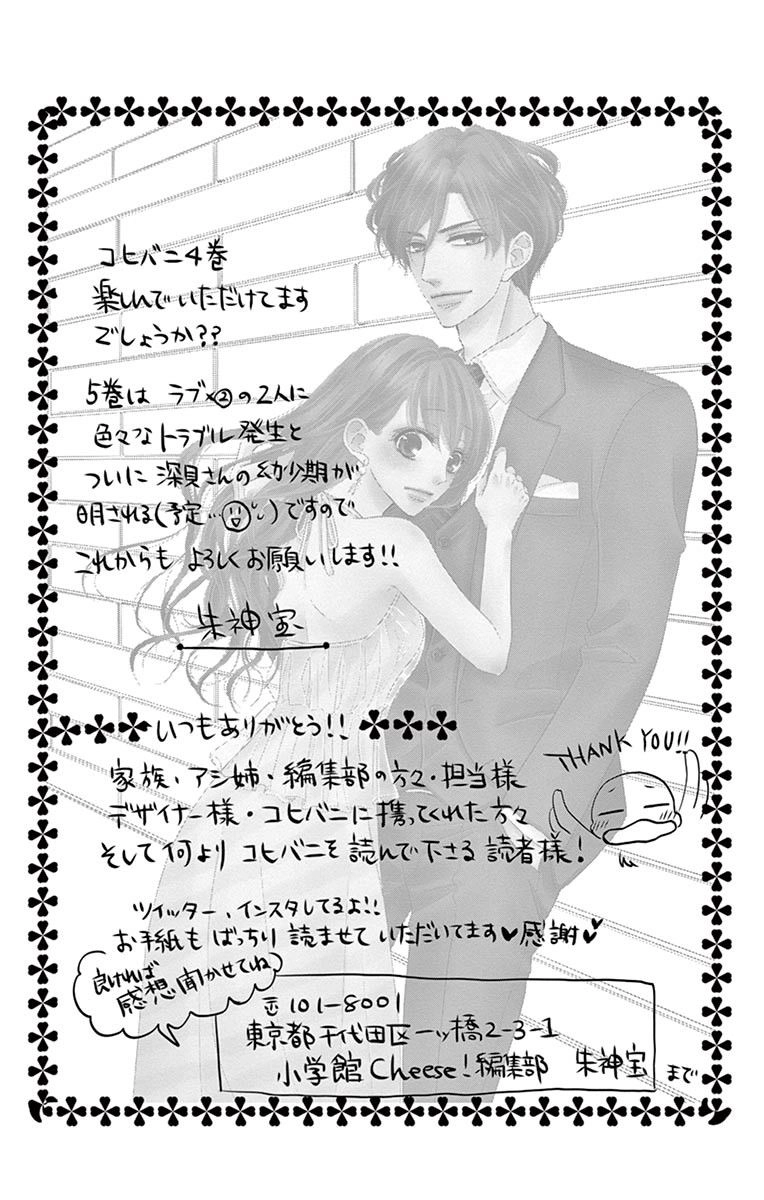 コヒバニ4巻
楽しんでいただけてます
でしょうか??
5巻は ラブ×②の2人に
色々なトラブル発生と
ついに 深見さんの幼少期が
明される(予定…)ですので
これからも よろしくお願いします!!
朱神宝
いつもありがとう!!
THANK YOU!!
家族・アシ姉・編集部の方々・担当様
デザイナー様・コヒバニに携ってくれた方々
そして何より コヒバニを読んで下さる 読者様!
ツイッター、インスタしてるよ!!
お手紙も ばっちり 読ませて いただいてます♥感謝♥
良ければ
感想聞かせてね
〒101-8001
東京都千代田区一ッ橋2-3-1
小学館Cheese!編集部 朱神宝 まで